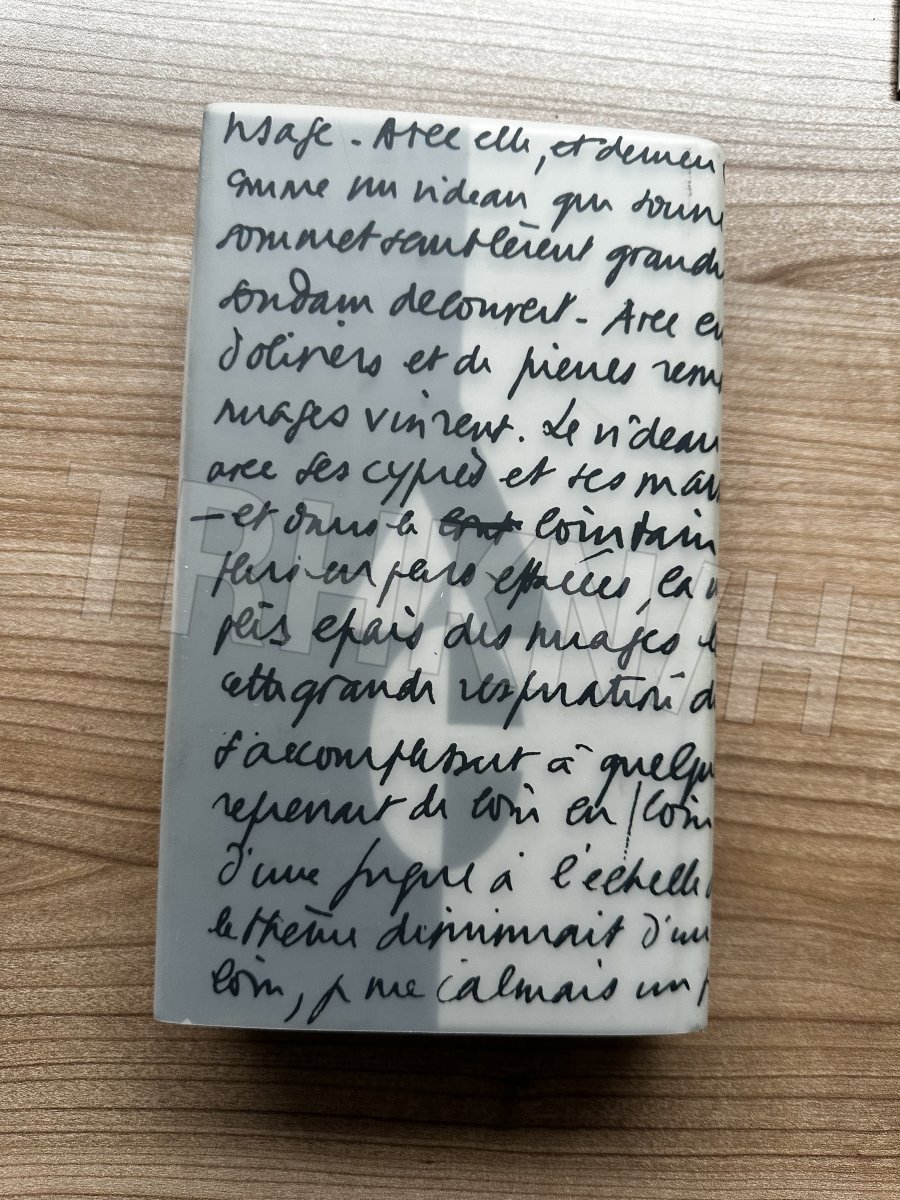 visage. Avec elle, et demeu
comme un rideau qui s'ouvre
sommet semblèrent grandi
soudain découvert. Avec e
d'oliviers et de pierres rem
nuages vinrent. Le rideau
avec ses cyprès et ses mai
— et dans le lointain
plus en plus effacées, la
plis épais des nuages
cette grande respiration d
s'accomplissait à quelqu
reprenait de loin en loin
d'une fugue à l'échelle
le thème diminuait d'un
loin, je me calmais un p
TRHKNVH